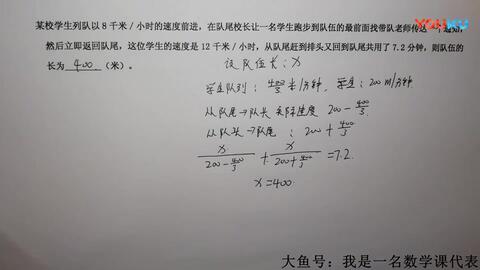 YOUKU
某校学生列队以 8 千米／小时的速度前进，在队尾校长让一名学生跑步到队伍的最前面找带队老师传达一个通知，
然后立即返回队尾，这位学生的速度是 12 千米／小时，从队尾赶到排头又回到队尾共用了 7.2 分钟，则队伍的
长为 400 （米）。
设队伍长：x
学生队列：400/3 米/分钟，学生：200 m/分钟
从队尾→队长 实际速度 200 - 400/3
从队头→队尾：200 + 400/3
x/(200 - 400/3) + x/(200 + 400/3) = 7.2
x = 400.
大鱼号：我是一名数学课代表